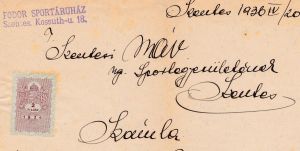 FODOR SPORTÁRUHÁZ
Szentes, Kossuth-u 18.
Szentes 1936 IV/20
Szentesi Máv
Sportegyesületének
Szentes
Számla